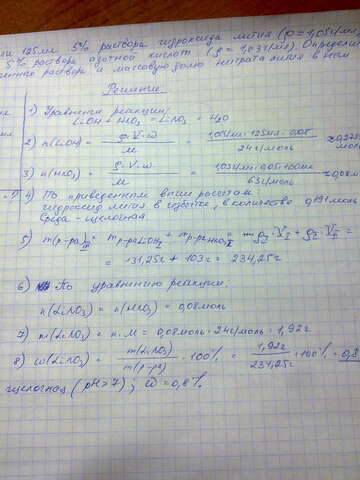 ли 125мл 5% раствора гидроксида лития (ρ=1,05г/мл)
5% раствора азотной кислот (ρ=1,03г/мл). Определи
раствора и массовую долю нитрата лития в нём
Решение
1) Уравнение реакции:
LiOH + HNO₃ = LiNO₃ + H₂O
2) n(LiOH) = ρ·V·ω / M = 1,05г/мл·125мл·0,05 / 24г/моль ≈
моль
3) n(HNO₃) = ρ·V·ω / M = 1,03г/мл·0,05·100мл / 63г/моль ≈ 0,08м
- ? 4) По приведенным выше расчетам
гидроксид лития в избытке, в количестве 0,191моль
Среда - щелочная
5) m(р-ра) = mр-раLiOH + mр-раHNO₃ = ρI·VI + ρII·VII =
= 131,25г + 103г = 234,25г
6) По уравнению реакции:
n(LiNO₃) = n(HNO₃) = 0,08моль
7) m(LiNO₃) = n·M = 0,08моль·24г/моль = 1,92г
8) ω(LiNO₃) = m(LiNO₃) / m(р-ра) · 100% = 1,92г / 234,25г · 100% = 0,8
щелочная (pH>7); ω = 0,8%